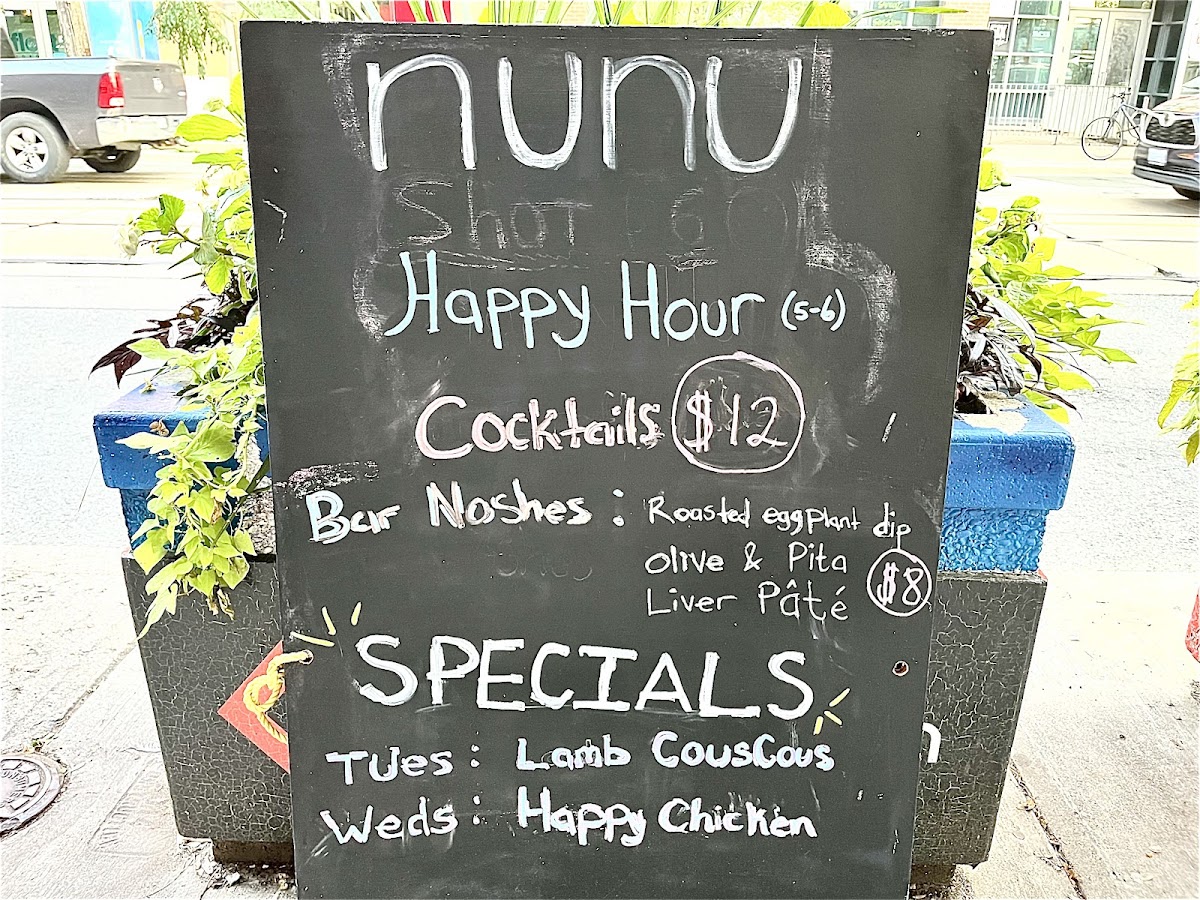 nunu
Shot
Happy Hour (5-6)
Cocktails $12
Bar Noshes : Roasted eggplant dip
Olive & Pita
Liver Pâté $8
SPECIALS
Tues : Lamb CousCous
Weds : Happy Chicken